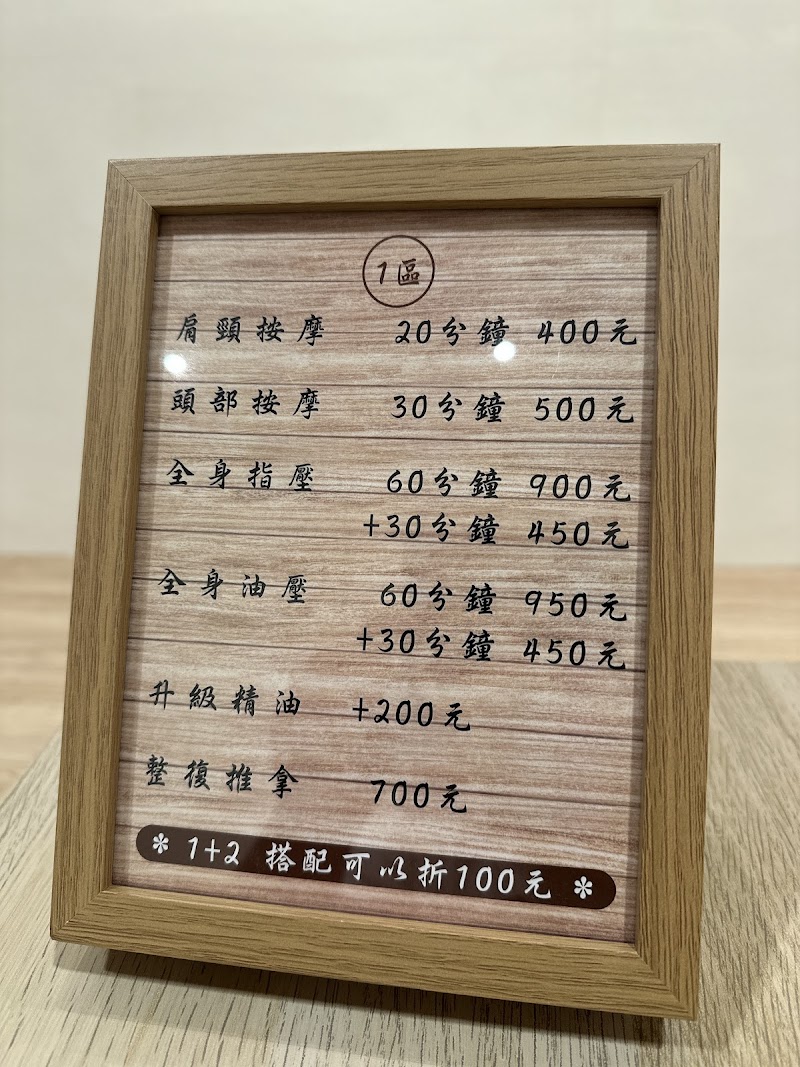 1區
肩頸按摩 20分鐘 400元
頭部按摩 30分鐘 500元
全身指壓 60分鐘 900元
+30分鐘 450元
全身油壓 60分鐘 950元
+30分鐘 450元
升級精油 +200元
整復推拿 700元
✻ 1+2 搭配可以折100元 ✻